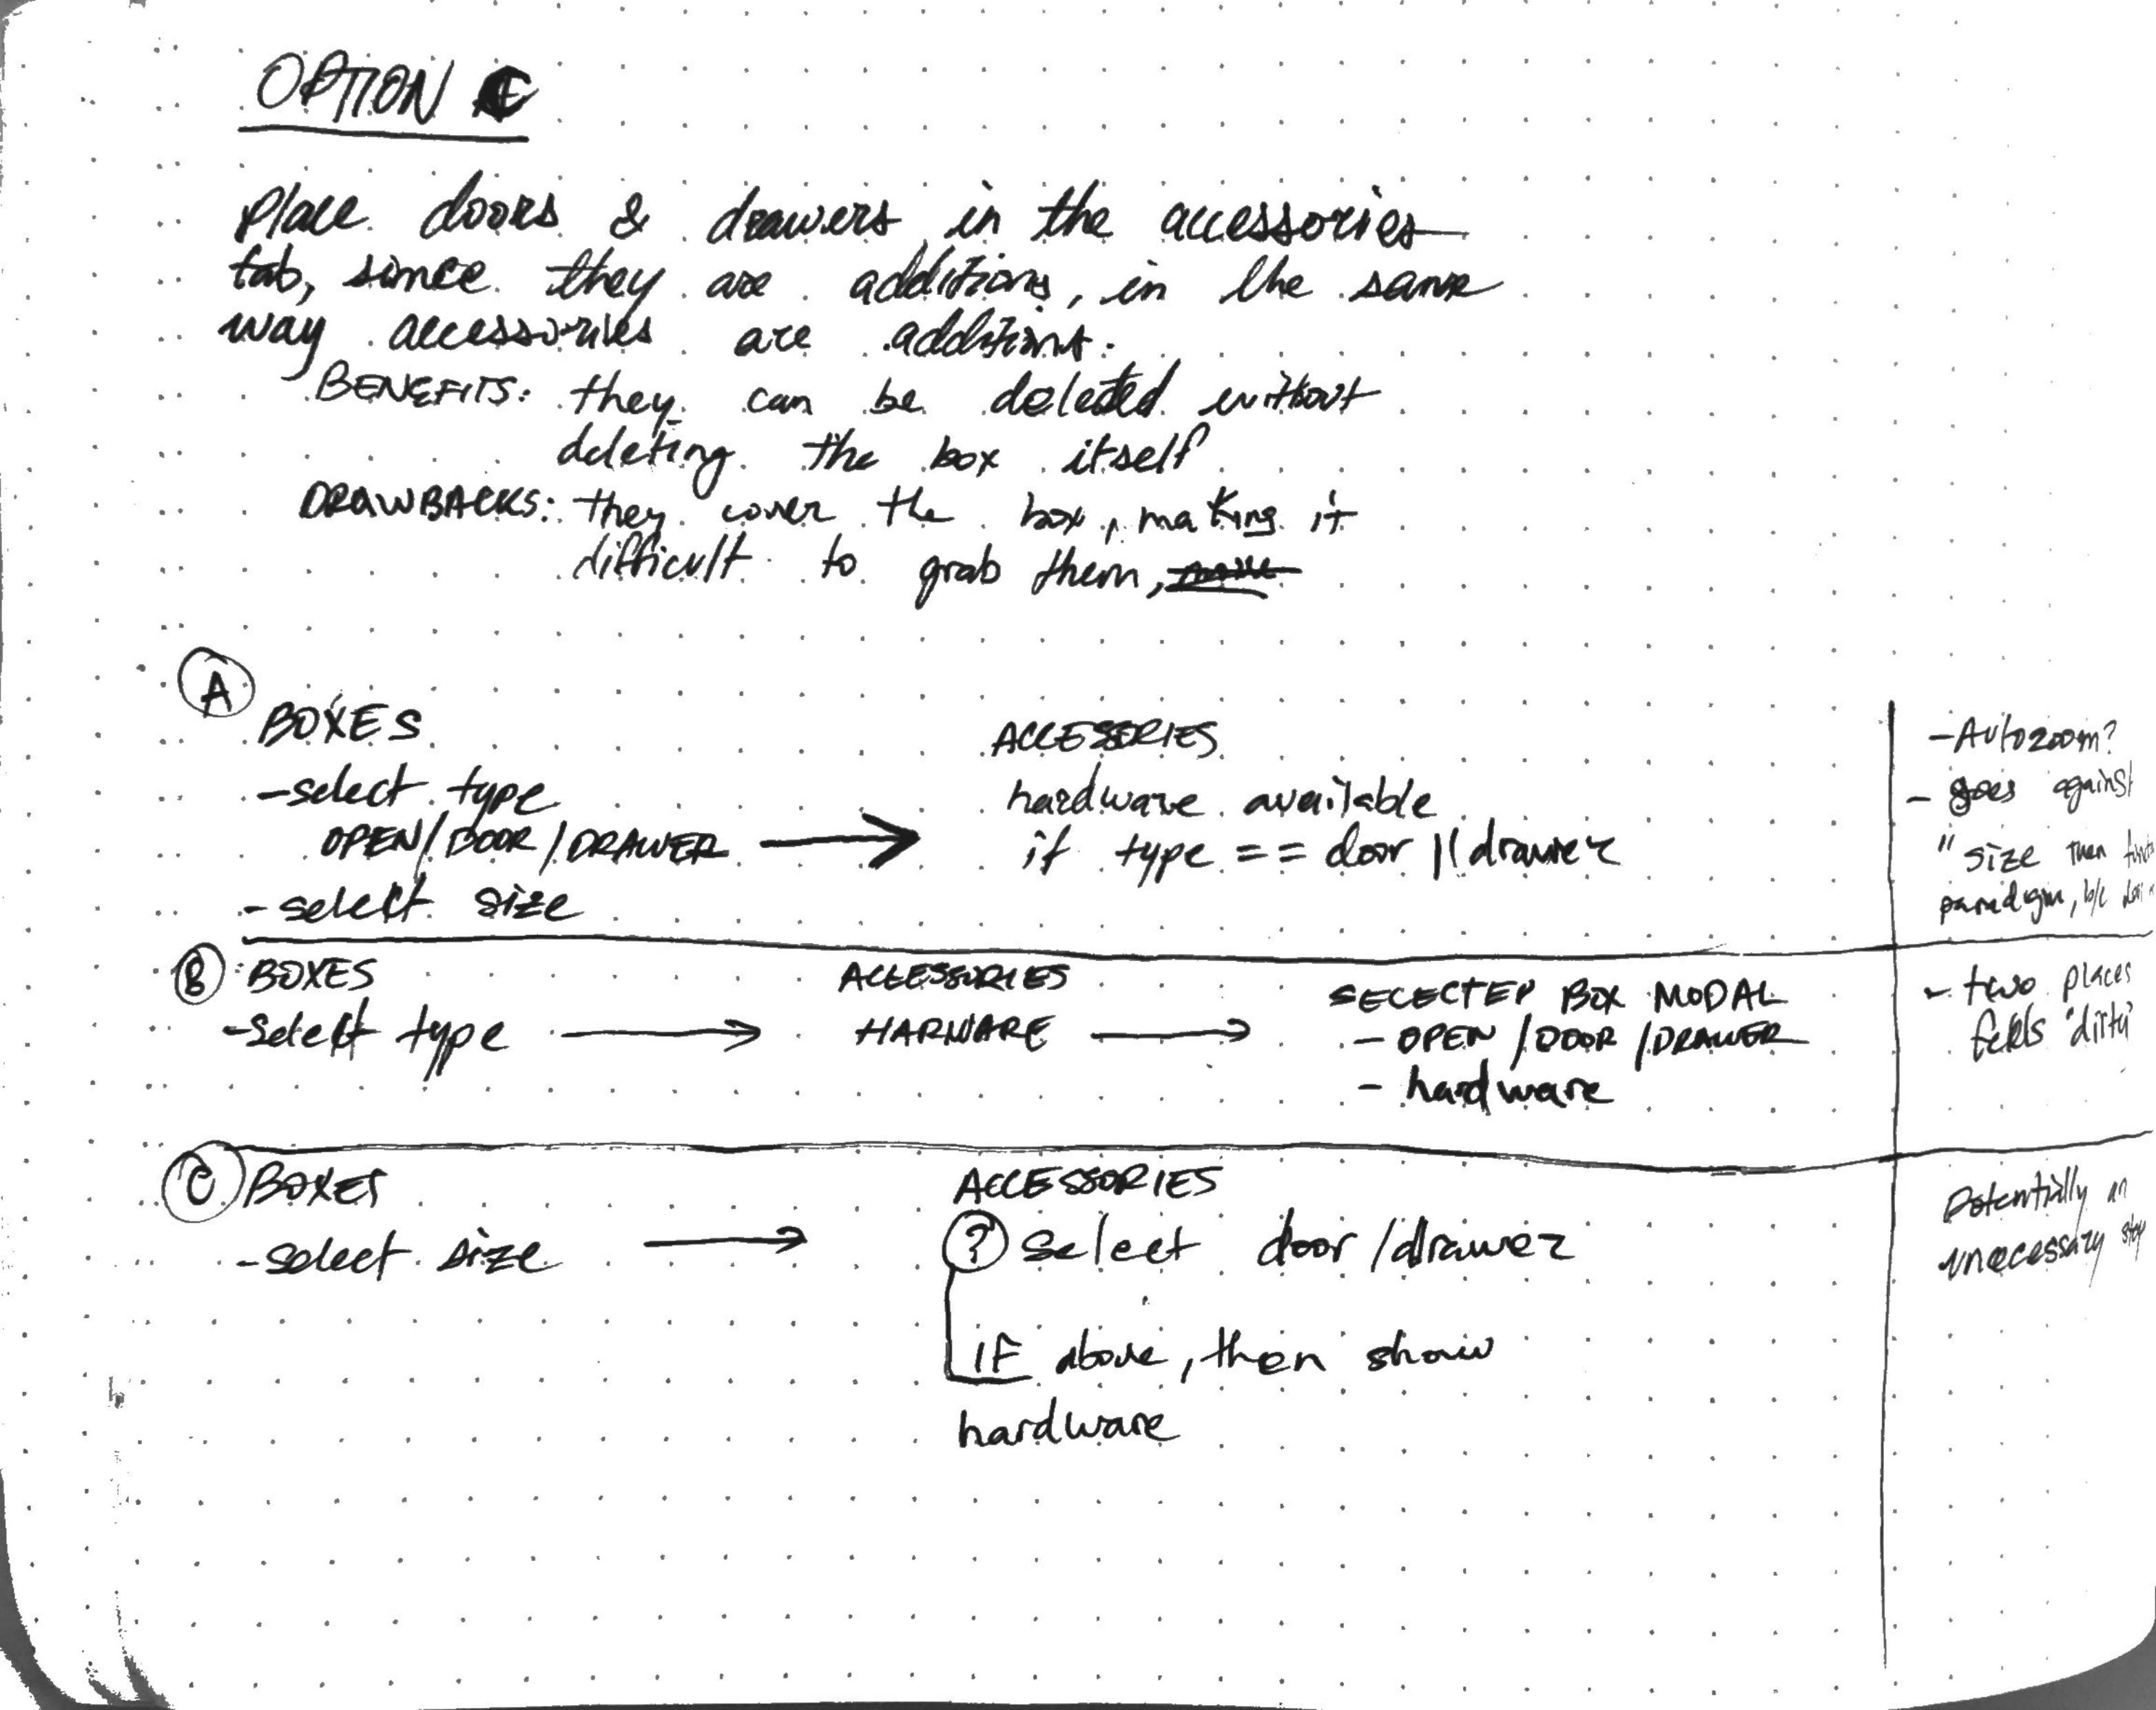 OPTION C
Place doors & drawers in the accessories
tab, since they are additions, in the same
way accessories are additions.
BENEFITS: they can be deleted without
deleting the box itself
DRAWBACKS: they cover the box, making it
difficult to grab them,
A
BOXES
-select type
OPEN/DOOR/DRAWER
-select size
ACCESSORIES
hardware available
if type == door || drawer
-Autozoom?
- goes against
"size then
paradigm, b/c
B BOXES
-Select type
ACCESSORIES
HARWARE
SELECTED BOX MODAL
- OPEN/DOOR/DRAWER
- hardware
- two places
feels 'dirty'
C BOXES
-select size
ACCESSORIES
? Select door/drawer
IF above, then show
hardware
Potentially an
unecessary step